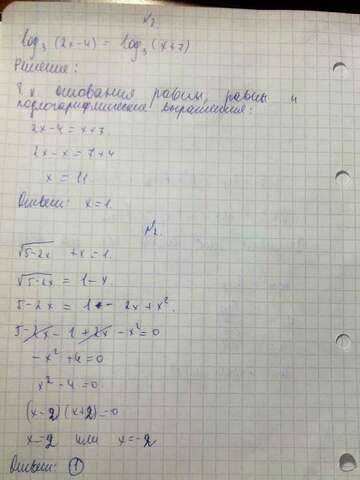 №2
log₃ (2x-4) = log₃ (x+7)
Решение:
Т.к. основания равны, равны и
подлогарифмические выражения:
2x-4 = x+7
2x-x = 7+4
x = 11
Ответ: x=1
№2.
√5-2x +x = 1.
√5-2x = 1-x
5-2x = 1 - 2x + x²
5-2x - 1 + 2x - x² = 0
-x² + 4 = 0
x² - 4 = 0
(x-2)(x+2) = 0
x=2 или x=-2
Ответ: 1